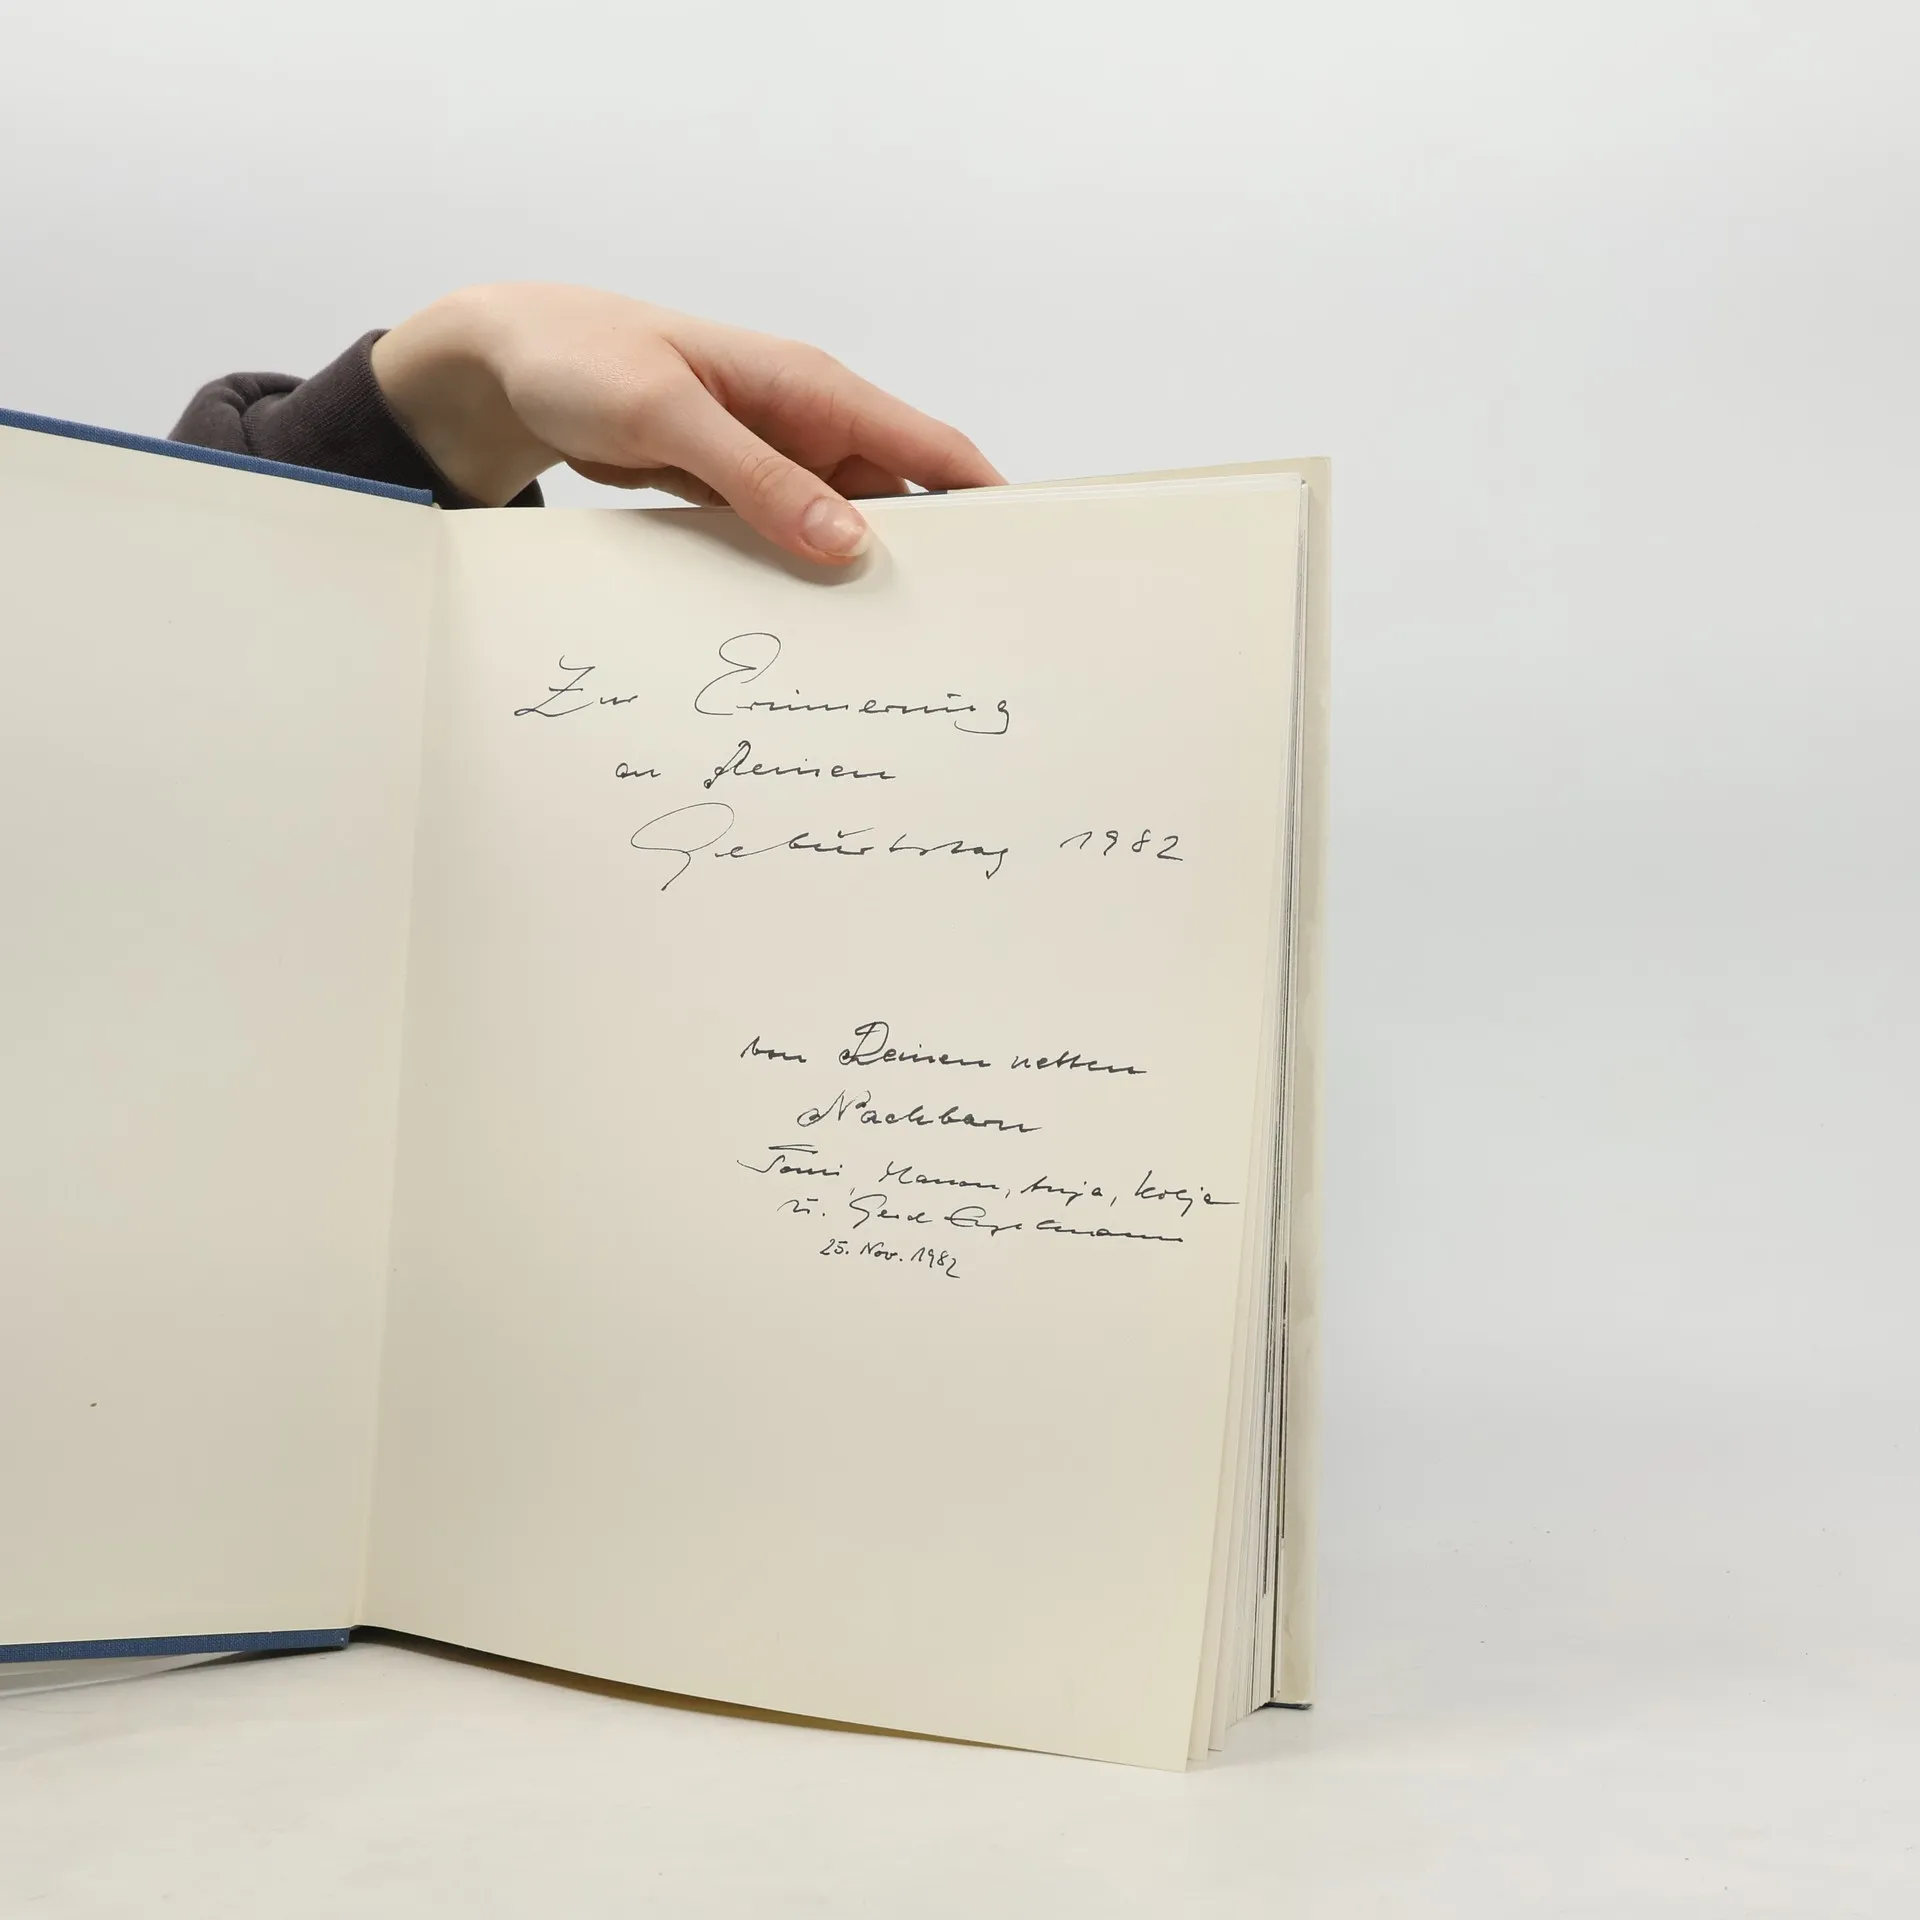 Zur Erinnerung
an Deinen
Geburtstag 1982
von Deinen netten
Nachbarn
Tomi, Manon, Anja, Kolja
u. Gerd Engelmann
25. Nov. 1982